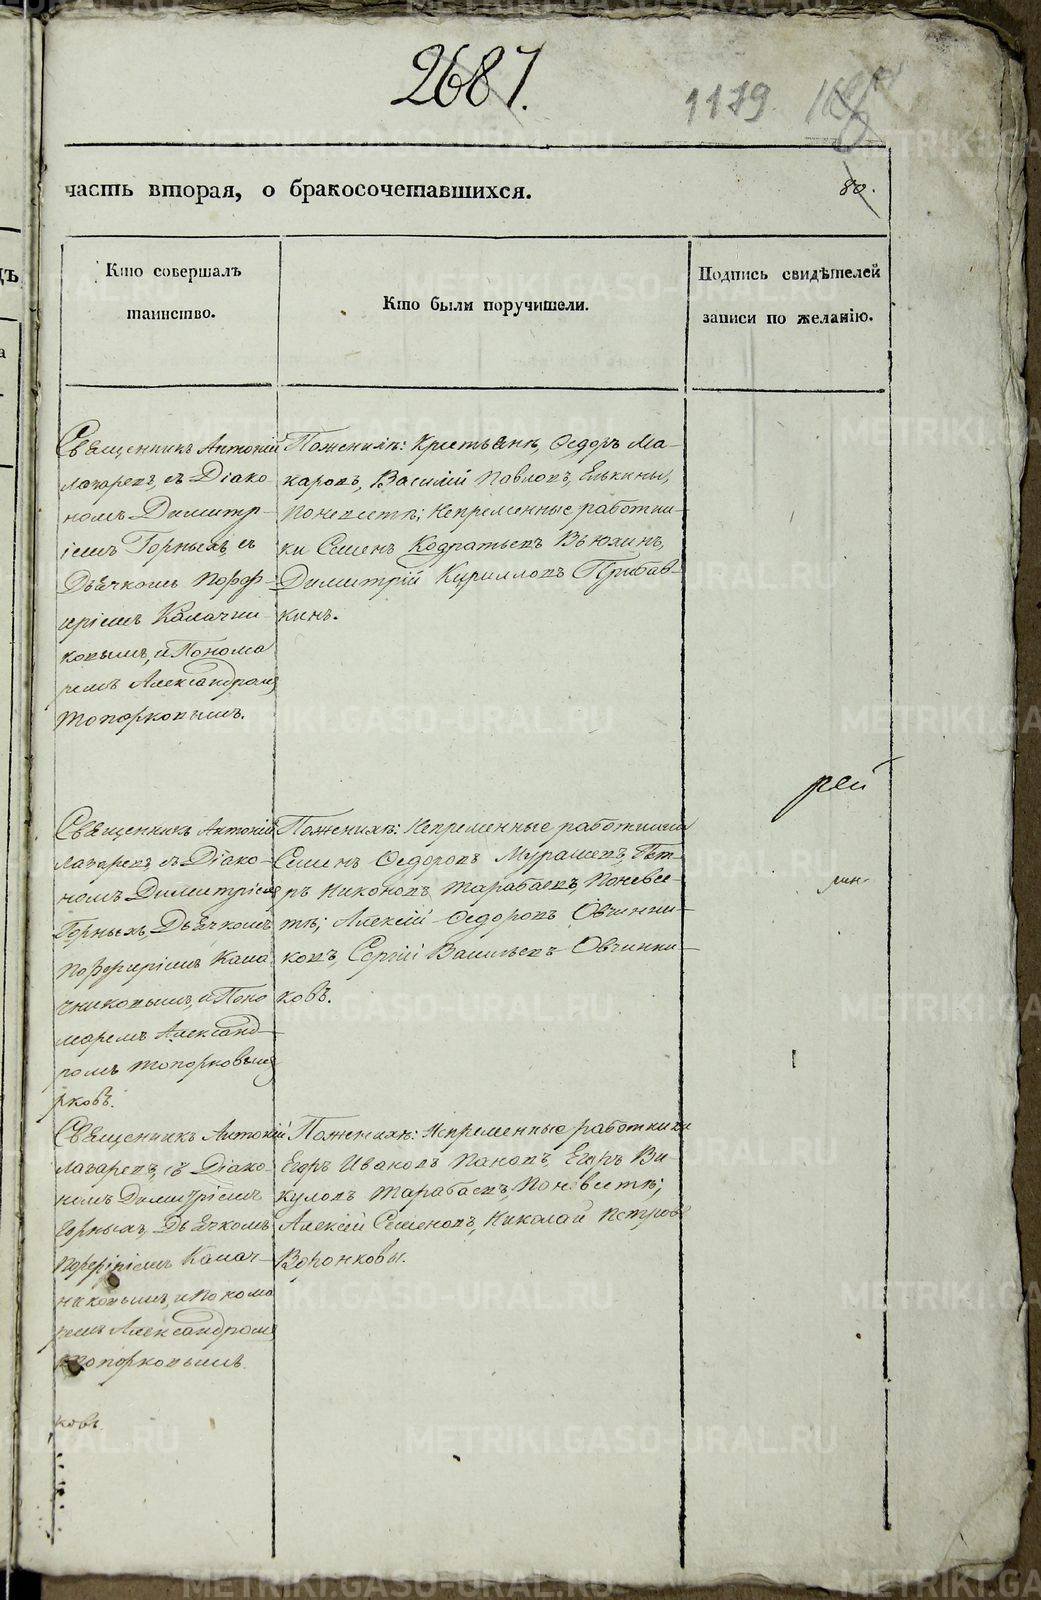 2687.
1179
80.
часть вторая, о бракосочетавшихся.
Кто совершалъ
таинство.
Кто были поручители.
Подпись свидѣтелей
записи по желанію.
Священникъ Антоній
Лазаревъ, съ Діако-
номъ Димитр-
іемъ Горныхъ, съ
Дьячкомъ Порф-
иріемъ Калачни-
ковымъ, и Понома
ремъ Александромъ
Топорковымъ.
Пожениxѣ: Крестьяне, Ѳедоръ Ма-
каровъ, Василій Павловъ, Елькины,
Поневестѣ; Непременные работни-
ки Семенъ Кодратьевъ Вьюхинъ,
Димитрій Кирилловъ Прибав-
кинъ.
рей
Священникъ Антоній
Лазаревъ, съ Діако-
номъ Димитріемъ
Горныхъ, Дьячкомъ
Порфиріемъ Кала-
чниковымъ, и Поно
маремъ Александ-
ромъ Топорковымъ
рковъ.
Пожениxѣ: Непременные работники
Семенъ Ѳедоровъ Мурашевъ, Пет-
ръ Никоновъ Тарабаевъ, Поневес-
тѣ; Алексій Ѳедоровъ Овчинни-
ковъ, Сергій Васильевъ Овчинни-
ковъ.
Священникъ Антоній
Лазаревъ, съ Діако-
номъ Димитріемъ
Горныхъ, Дьячкомъ
Порфиріемъ Калач-
никовымъ, и Понома
ремъ Александромъ
Топорковымъ.
ковъ
Пожениxѣ: Непременные работники
Егоръ Ивановъ Пановъ, Егоръ Ви-
куловъ Тарабаевъ, Поневестѣ;
Алексій Семеновъ, Николай Петровъ
Воронковы.
METRIKI.GASO-URAL.RU